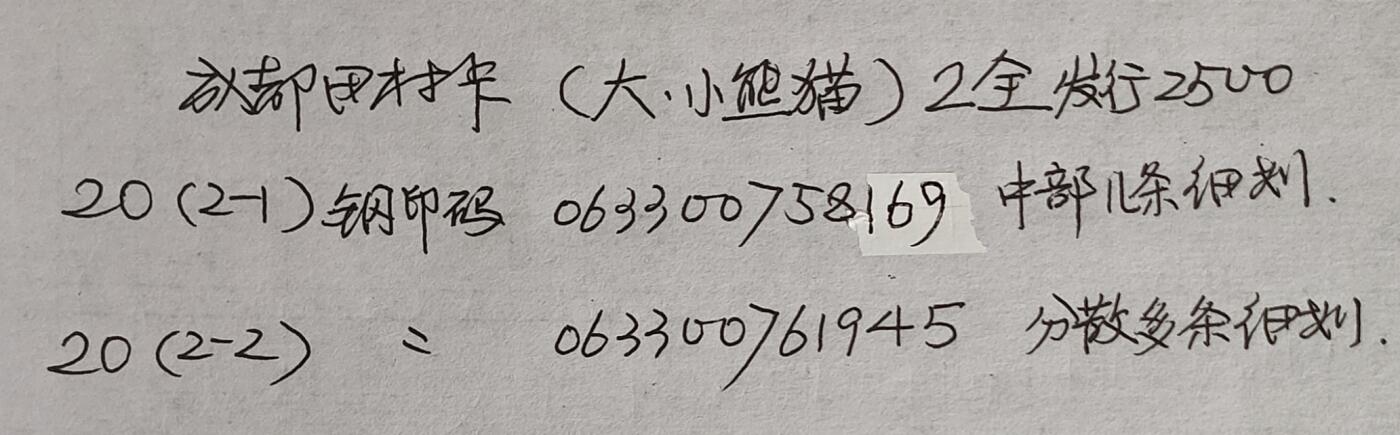 成都田村卡（大.小熊猫）2全发行2500
20（2-1）钢印码 063300758169 中部几条细划.
20（2-2） 〃 063300761945 分散多条细划.